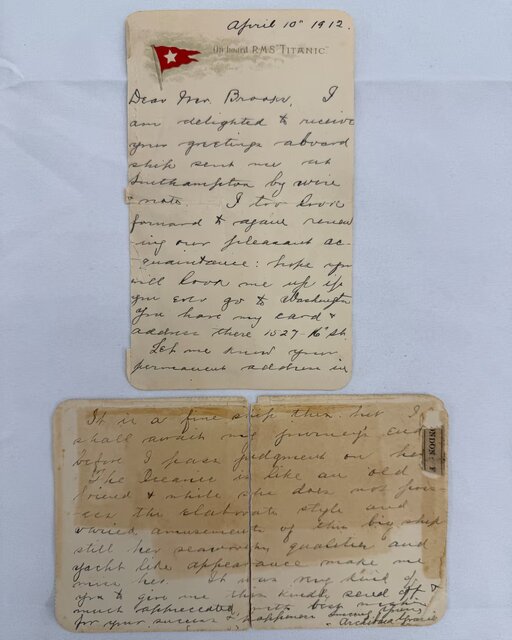 April 10th 1912.
On board R.M.S "TITANIC"
Dear Mrs. I
am delighted to receive
your greetings aboard
ship sent me at
Southampton by wire
& note. I too look
forward to again renew
ing our pleasant ac-
quaintance: hope you
will look me up if
you ever go to Washington
You have my card &
address there 1527-16th St.
Let me know your
permanent address in
It is a fine ship this but I
shall await my journey's end
before I pass judgment on her
The Oceanic is like an old
friend & while she does not poss-
ess the elaborate style and
varied amusements of this big ship
still her seaworthy qualities and
yacht like appearance make me
miss her. It was very kind of
you to give me this kindly send off &
much appreciated, with best wishes
for your success & happiness
Archibald Gracie
ONDON